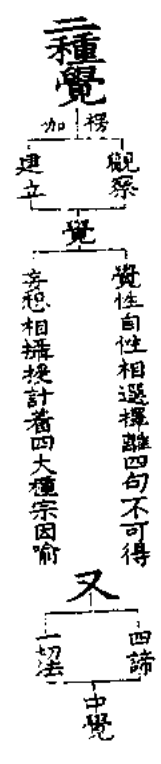 二種覺
楞
加
觀察
建立
覺
覺性自性相選擇離四句不可得
妄想相攝授計著四大種宗因喻
又
四諦
一切法
中覺